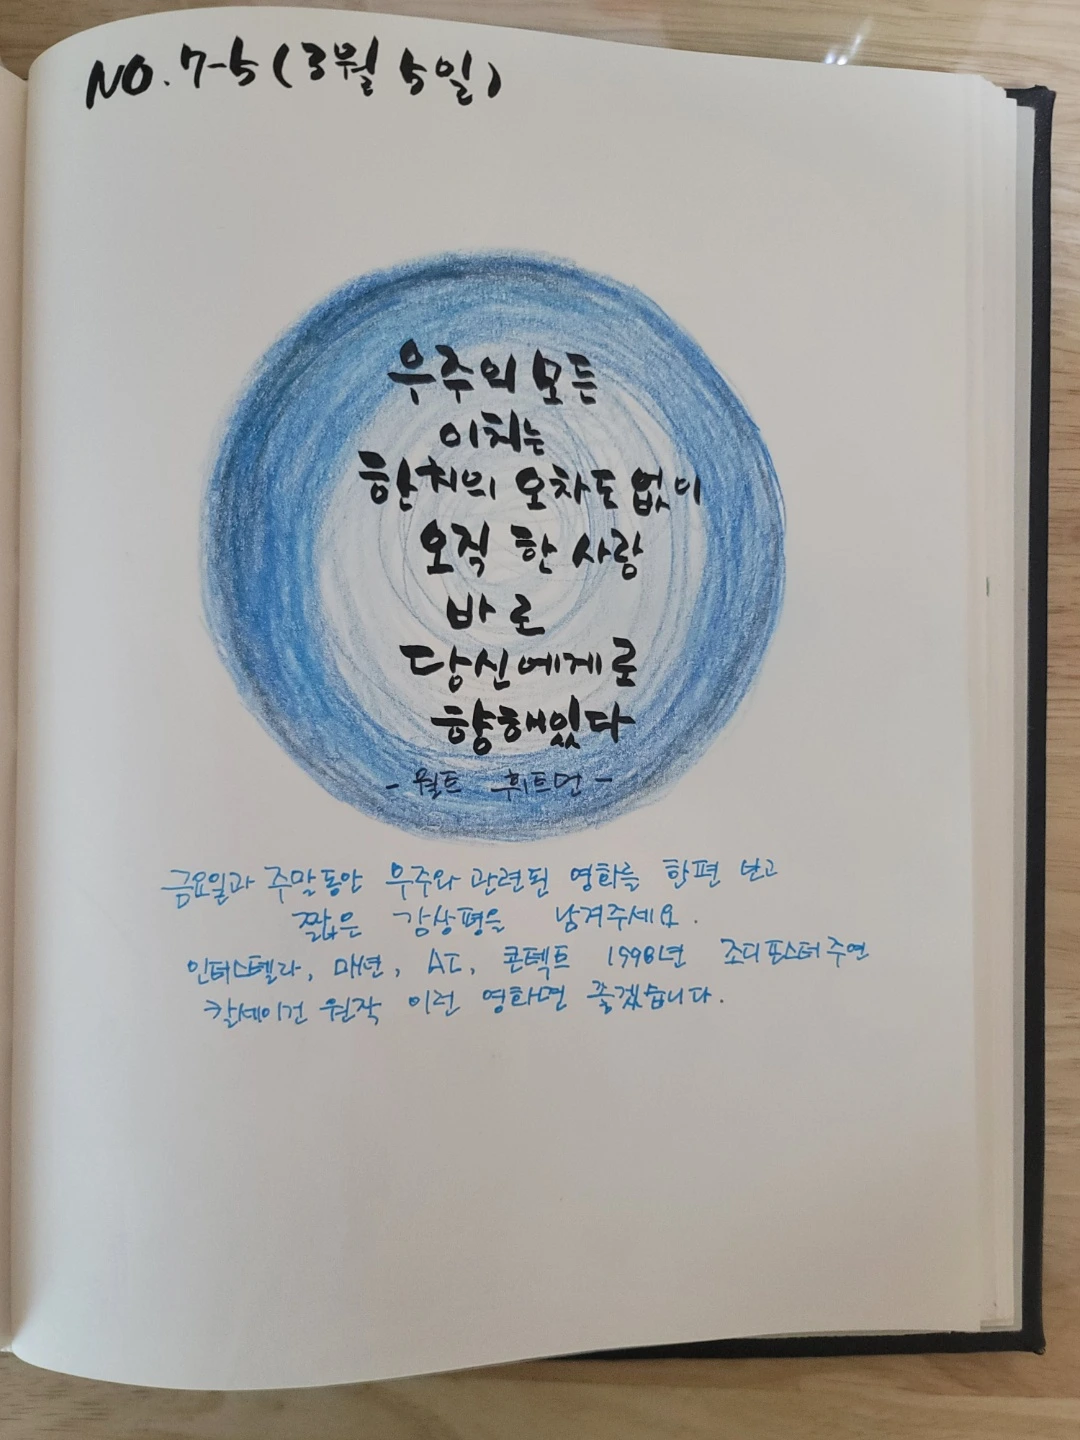 NO. 7-5 (3월 5일)
우주의 모든
이치는
한치의 오차도 없이
오직 한 사람
바로
당신에게로
향해있다
- 월트 휘트먼 -
금요일과 주말동안 우주와 관련된 영화를 한편 보고
짧은 감상평을 남겨주세요.
인터스텔라, 매년, AI, 콘텍트 1998년 조디포스터주연
칼세이건 원작 이런 영화면 좋겠습니다.